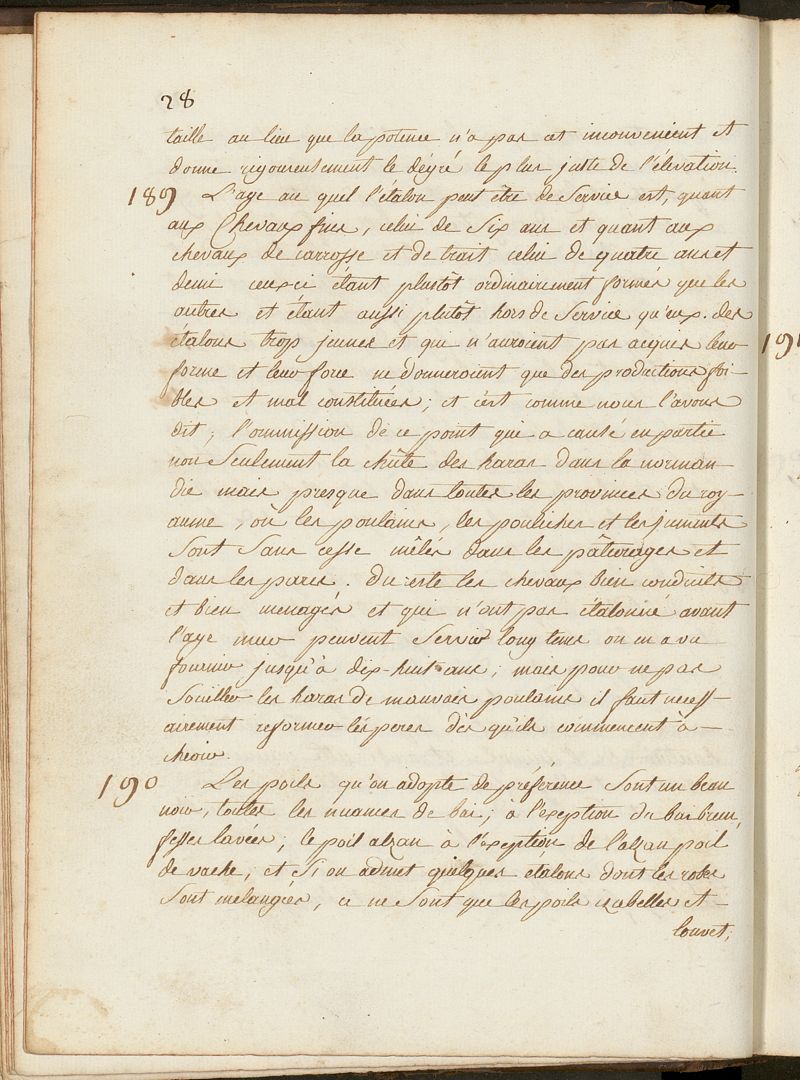 28
taille au lieu que la potence n'a pas cet inconvenient et
donne rigoureusement le dégré le plus juste de l'élevation.
189 L'age au quel l'étalon peut etre de Service est, quant
aux Chevaux fins, celui de Six ans et quant aux
chevaux de carrosse et de trait celui de quatre ans et
demi ceux ci étant plustôt ordinairement formés que les
autres et étant aussi plutôt hors de Service qu'eux. des
étalons trop jeunes et qui n'auroient pas acquis leur
forme et leur force ne donneroient que des productions foi-
bles et mal constituées; et c'est comme nous l'avons
dit, l'ommission de ce point qui a causé en partie
non Seulement la chûte des haras dans la norman-
die mais presque dans toutes les provinces du roy-
aume, où les poulains, les pouliches et les juments
Sont Sans cesse mêlés dans les pâturages et
dans les parcs. Du reste les chevaux bien conduits
et bien menagés et qui n'ont pas étalonné avant
l'age meur peuvent Servir long tems on en a vu
fournir jusqu'à dix-huit ans; mais pour ne pas
Souiller les haras de mauvais poulains il faut necess-
airement reformer les peres dès qu'ils commencent à
cheoir.
190 Les poils qu'on adopte de préférence Sont un beau
noir, toutes les nuances de bai, à l'exeption du bai brun,
fesses lavées; le poil alzan à l'exeption de l'alzan poil
de vache; et Si on admet quelques étalons dont les robes
Sont melangées, ce ne Sont que les poils izabelles et
louvet;
191